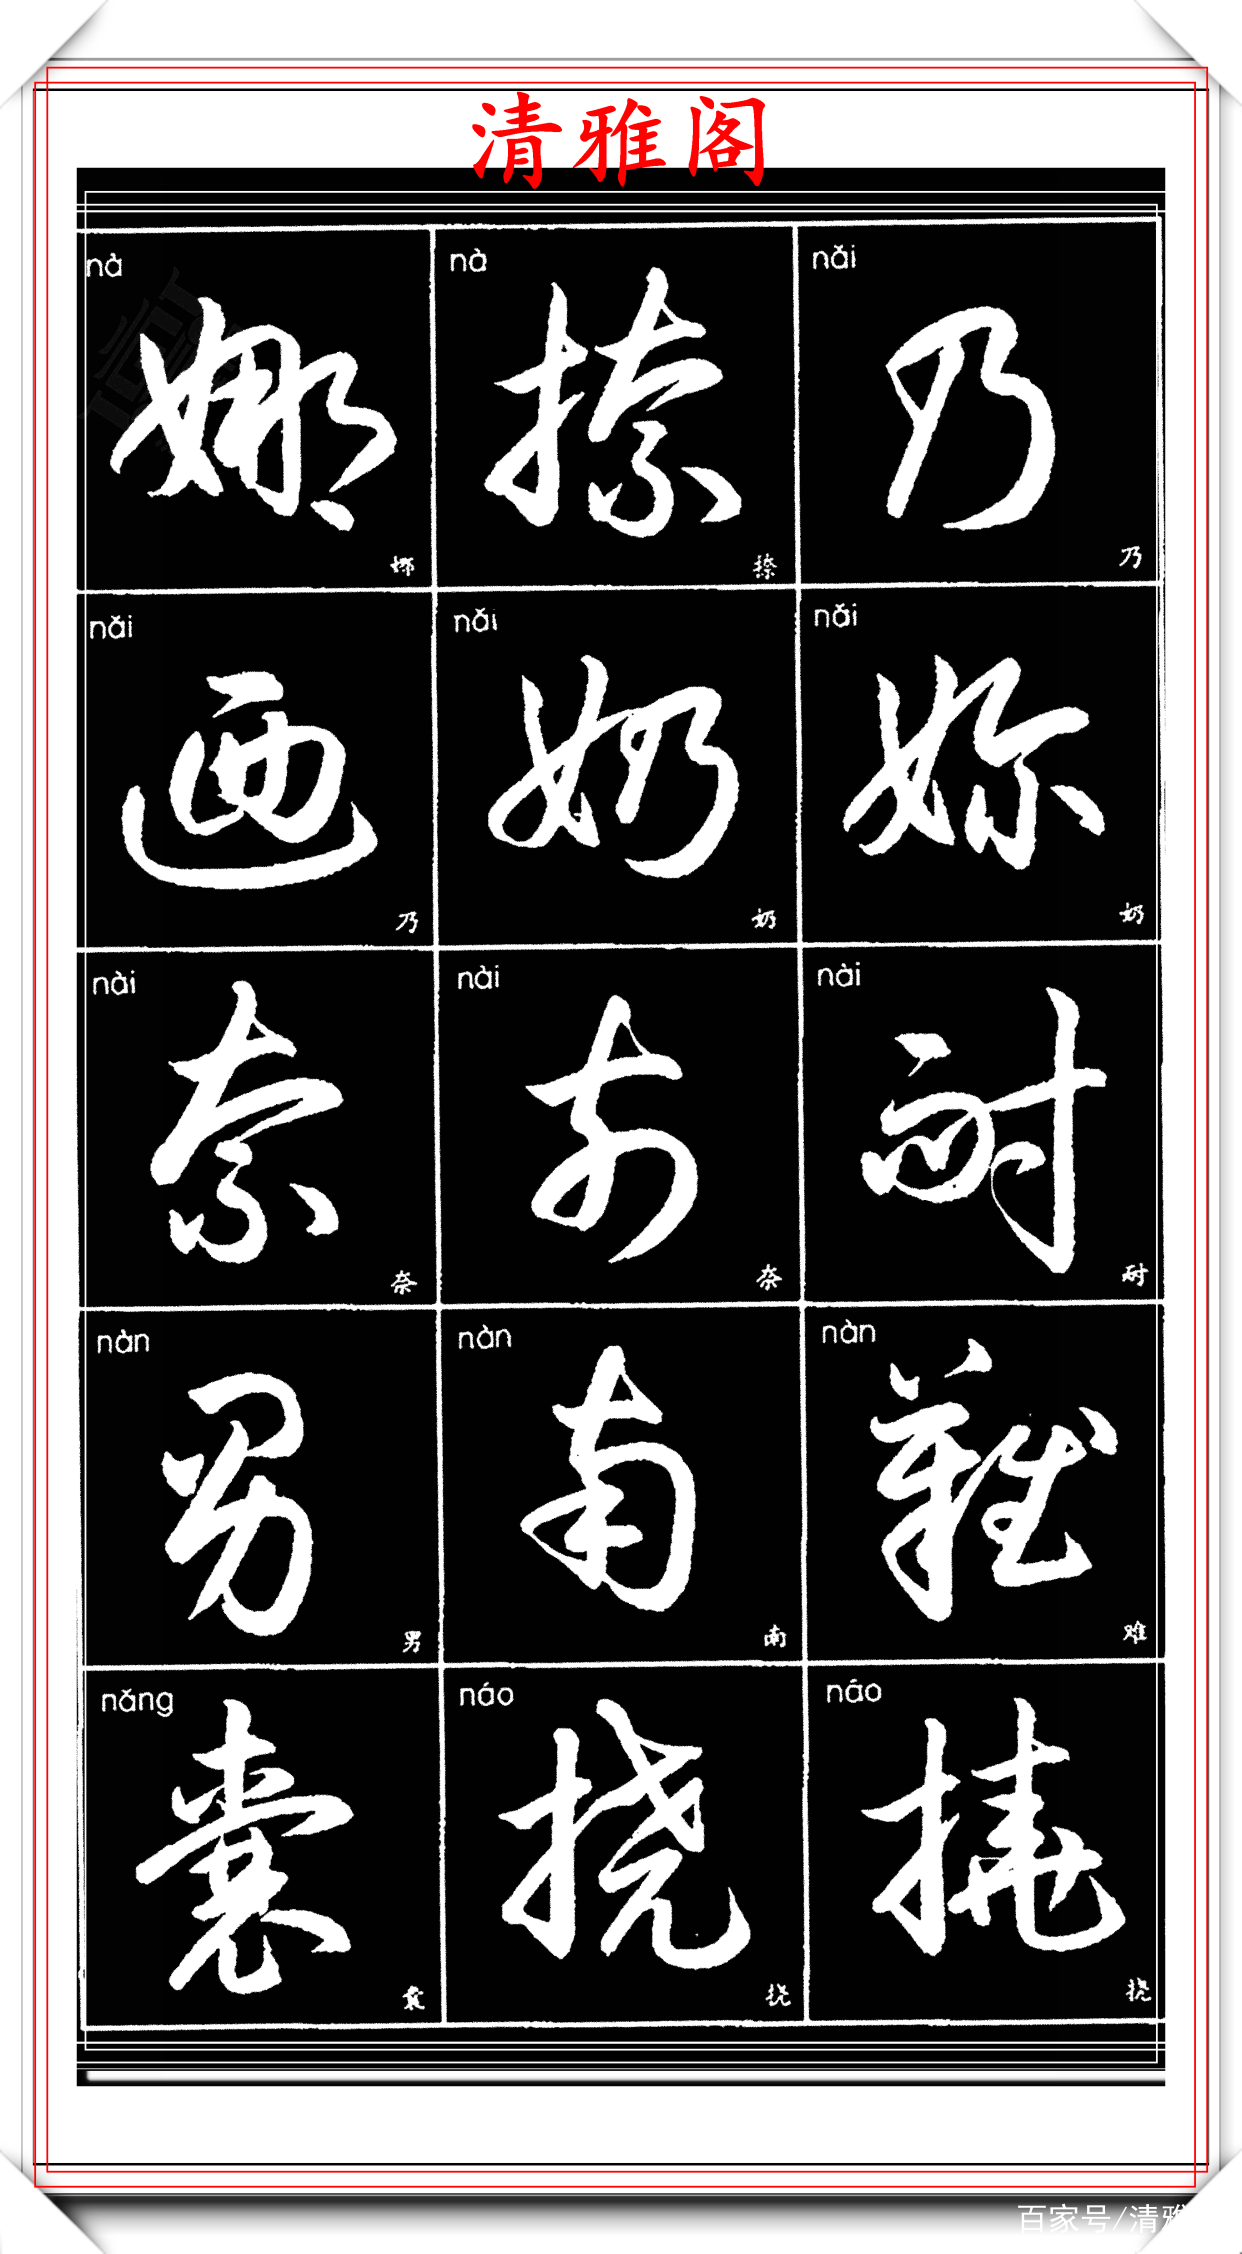 清雅阁
nà 娜 娜
nà 捺 捺
nǎi 乃 乃
nǎi 迺 乃
nǎi 奶 奶
nǎi 嬭 奶
nài 奈 奈
nài 奈
nài 耐 耐
nàn 男 男
nàn 南 南
nàn 難 难
nǎng 囊 囊
náo 挠 挠
náo 撓 挠
百家号/清雅